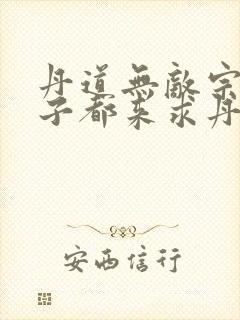 丹道無敵宗
子都來求丹
安西信行